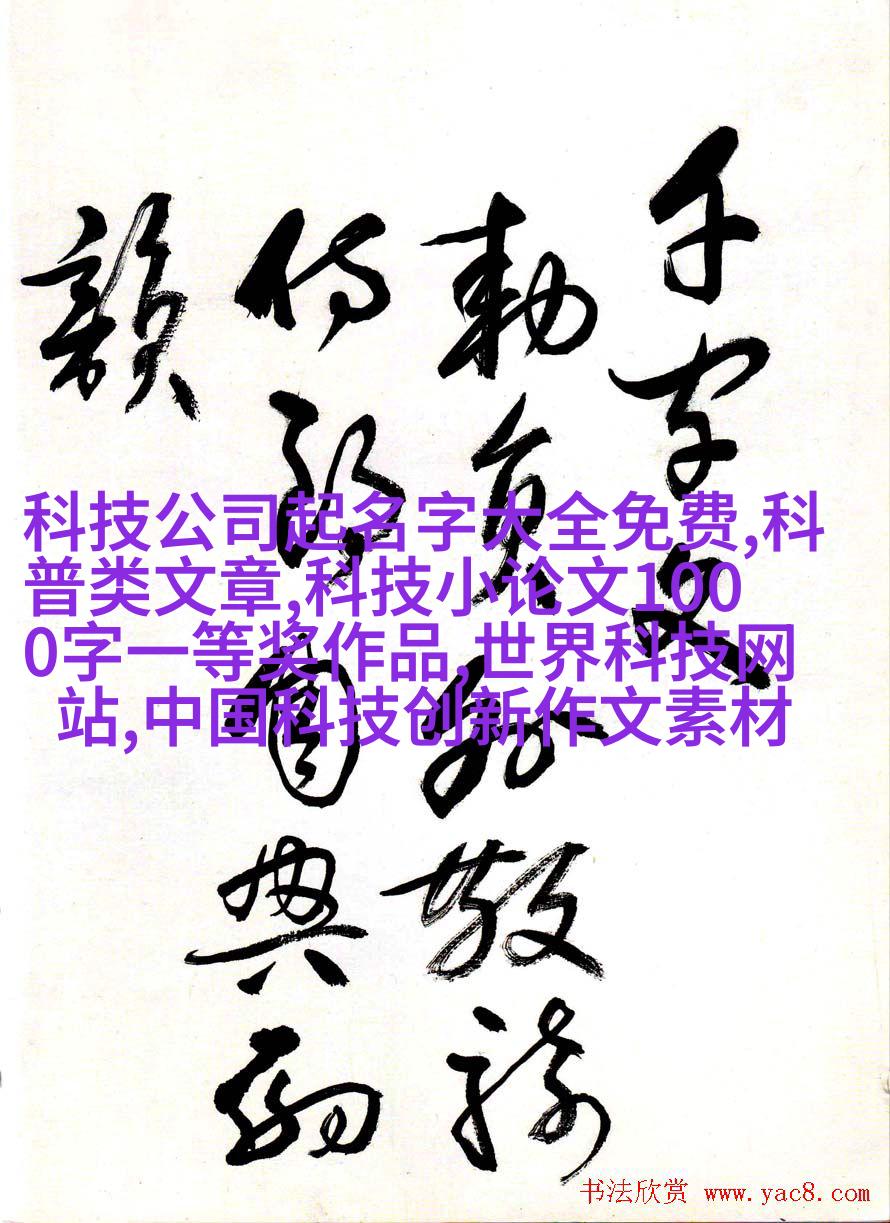 千字文
勅員外散騎
侍郎周興嗣
韻
科技公司起名字大全免费,科
普类文章,科技小论文100
0字一等奖作品,世界科技网
站,中国科技创新作文素材
书法欣赏 www.yac8.com